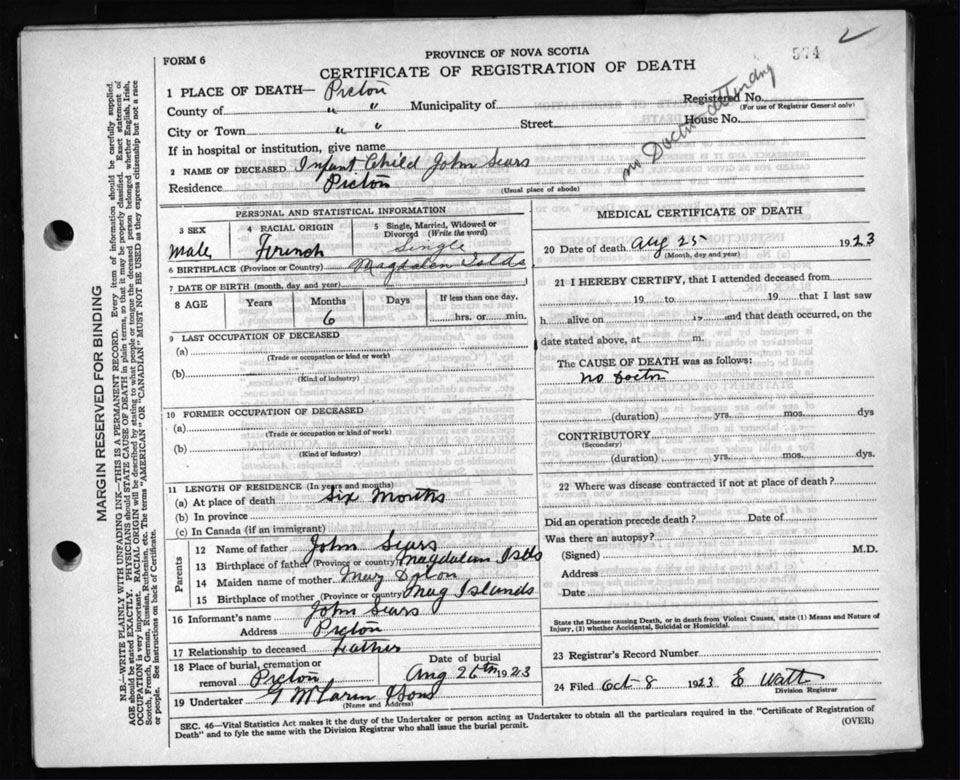 FORM 6
PROVINCE OF NOVA SCOTIA
574
CERTIFICATE OF REGISTRATION OF DEATH
no Doctor attending
1 PLACE OF DEATH— Pictou
Registered No.
(For use of Registrar General only)
County of " " Municipality of
City or Town " " Street House No.
If in hospital or institution, give name
2 NAME OF DECEASED Infant Child John Sears
Residence Pictou
(Usual place of abode)
PERSONAL AND STATISTICAL INFORMATION
3 SEX 4 RACIAL ORIGIN 5 Single, Married, Widowed or Divorced (Write the word)
Male French Single
6 BIRTHPLACE (Province or Country) Magdalen Islds
7 DATE OF BIRTH (month, day and year)
8 AGE Years Months Days If less than one day,
6 hrs. or min.
9 LAST OCCUPATION OF DECEASED
(a)
(Trade or occupation or kind or work)
(b)
(Kind of industry)
10 FORMER OCCUPATION OF DECEASED
(a)
(Trade or occupation or kind of work)
(b)
(Kind of industry)
11 LENGTH OF RESIDENCE (In years and months)
(a) At place of death Six Months
(b) In province
(c) In Canada (if an immigrant)
Parents
12 Name of father John Sears
13 Birthplace of father (Province or country) Magdalam Islds
14 Maiden name of mother Mary
15 Birthplace of mother (Province or country) Mag Islands
16 Informant's name John Sears
Address Pictou
17 Relationship to deceased Father
18 Place of burial, cremation or removal Pictou
Date of burial
Aug 26th 1923
19 Undertaker G McLaren & Sons
(Name and Address)
MEDICAL CERTIFICATE OF DEATH
20 Date of death Aug 25 1923
(Month, day and year)
21 I HEREBY CERTIFY, that I attended deceased from
19 to 19 that I last saw
h alive on 19 and that death occurred, on the
date stated above, at m.
The CAUSE OF DEATH was as follows:
No Doctor
(duration) yrs. mos. dys
CONTRIBUTORY
(Secondary)
(duration) yrs. mos. dys.
22 Where was disease contracted if not at place of death?
Did an operation precede death? Date of
Was there an autopsy?
(Signed) M.D.
Address
Date
State the Disease causing Death, or in death from Violent Causes, state (1) Means and Nature of Injury, (2) whether Accidental, Suicidal or Homicidal.
23 Registrar's Record Number
24 Filed Oct 8 1923 E Watt
Division Registrar
SEC. 46—Vital Statistics Act makes it the duty of the Undertaker or person acting as Undertaker to obtain all the particulars required in the "Certificate of Registration of
Death" and to fyle the same with the Division Registrar who shall issue the burial permit.
(OVER)
MARGIN RESERVED FOR BINDING
N.B.—WRITE PLAINLY WITH UNFADING INK—THIS IS A PERMANENT RECORD. Every item of information should be carefully supplied.
AGE should be stated EXACTLY. PHYSICIANS should STATE CAUSE OF DEATH in plain terms, so that it may be properly classified. Exact statement of
OCCUPATION is very important. RACIAL ORIGIN will be described by stating to what people or tongue the deceased person belonged whether English, Irish,
Scotch, French, German, Russian, Ruthenian, etc. The terms "AMERICAN" OR "CANADIAN" MUST NOT BE USED as they express citizenship but not a race
or people. See instructions on back of Certificate.